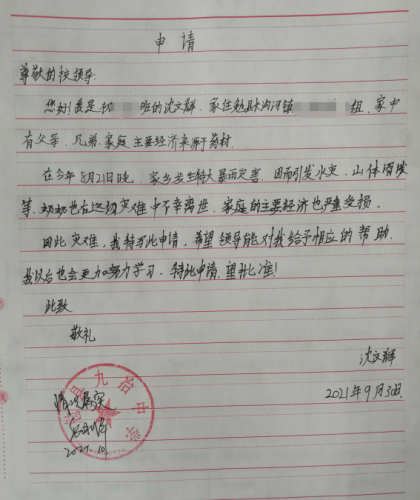 申请
尊敬的校领导:
您好!我是初 班的沈文辉.家住勉县沟河镇 组.家中
有父母、兄弟.家庭主要经济来源于药材.
在今年8月21日晚,家乡发生特大暴雨灾害,因而引发水灾、山体滑坡
等.奶奶也在这场灾难中不幸离世.家庭的主要经济也严重受损.
因此灾难,我特为此申请,希望领导能对我给予相应的帮助.
我以后也会更加努力学习.特此申请.望批准!
此致
敬礼
沈文辉
2021年9月3日.
情况属实
2021.10.
九冶中学